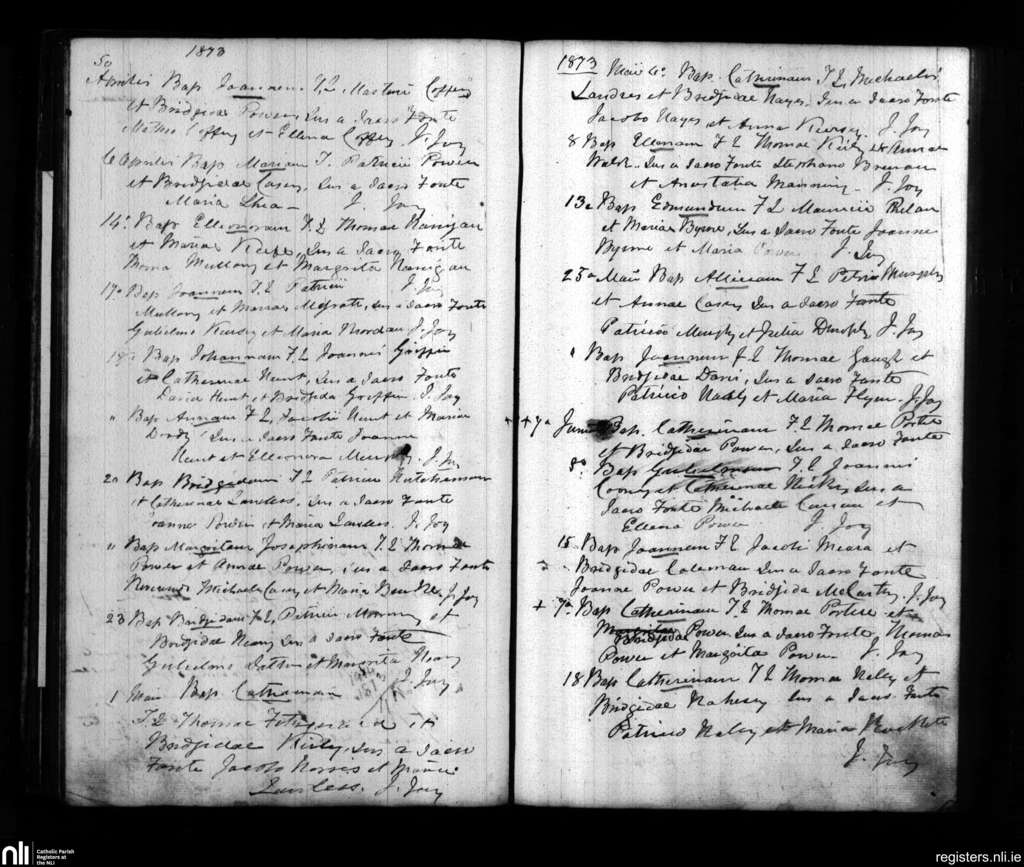 50
1873
Aprilis Bap Joannem F.L Coffey
et Bridgidae Power, Sus a Sacro Fonte
Coffey et Ellena Coffey J. Joy
6 Aprilis Bap Mariam F. Patricii Power
et Bridgidae Casey, Sus a Sacro Fonte
Maria Shea J. Joy
14 Bap Elleonoram F.L Thomae Hanigan
et Mariae Keefe, Sus a Sacro Fonte
Thoma Mullony et Margrita Hanigan
17 Bap Joannem F.L Patricii J. Joy
Mullony et Mariae McGrath, Sus a Sacro Fonte
Gulielmo Kersey et Maria Riordan J. Joy
Bap Johannam F.L Joannis Griffin
et Catherinae Hunt, Sus a Sacro Fonte
David Hunt et Bridgida Griffin J. Joy
" Bap Annam F.L Jacobi Hunt et Mariae
Sus a Sacro Fonte Joanne
Hunt et Elleonora Murphy J. Joy
20 Bap Bridgidam F.L Patricii Hutchinson
et Catherinae Lawless, Sus a Sacro Fonte
Joanne Power et Maria Lawless J. Joy
" Bap Margritam Josephinam F.L Thomae
Power et Annae Power, Sus a Sacro Fonte
Michaele Casey et Maria J. Joy
23 Bap Bridgidam F.L Patricii et
Bridgidae Neary Sus a Sacro Fonte
Gulielmo et Margrita Neary
J. Joy
1 Maii Bap Catherinam
F.L Thomae Fitzgerald et
Bridgidae Kiely, Sus a Sacro
Fonte Jacobo Norris et Maria
Lawless. J. Joy
1873
Maii 4o Bap Catherinam F.L Michaelis
Landres et Bridgidae Hayes, Sus a Sacro Fonte
Jacobo Hayes et Anna Kersey J. Joy
8 Bap Ellenam F L Thomae Kiely et Annae
Walsh Sus a Sacro Fonte Stephano Brennan
et Anastatia Manning J. Joy
13 Bap Edmundum F L Mauricii Phelan
et Mariae Byrne, Sus a Sacro Fonte Joanne
Byrne et Maria Power J. Joy
25 Maii Bap Alliciam F L Petri Murphy
et Annae Casey Sus a Sacro Fonte
Patricio Murphy et Julia Dunphy J. Joy
" Bap Joannem F L Thomae Gough et
Bridgidae Davis, Sus a Sacro Fonte
Patricio et Maria Flynn. J. Joy
+ + 7 Junii Bap. Catherinam F L Thomae Porter
et Bridgidae Power, Sus a Sacro Fonte
8o Bap Gulielmum F.L Joannis
Cooney et Catherinae Hickey Sus a
Sacro Fonte Michaele et
Ellena Power J. Joy
15 Bap Joannem F L Jacobi Meara et
Bridgidae Coleman Sus a Sacro Fonte
Joanne Power et Bridgida McCarthy J. Joy
+ 7 Bap Catherinam F L Thomae Porter et
Bridgidae Power Sus a Sacro Fonte Thomas
Power et Margrita Power J. Joy
18 Bap Catherinam F L Thomae et
Bridgidae Sus a Sacro Fonte
Patricio et Maria
J. Joy
nli Catholic Parish
Registers at
the NLI
registers.nli.ie